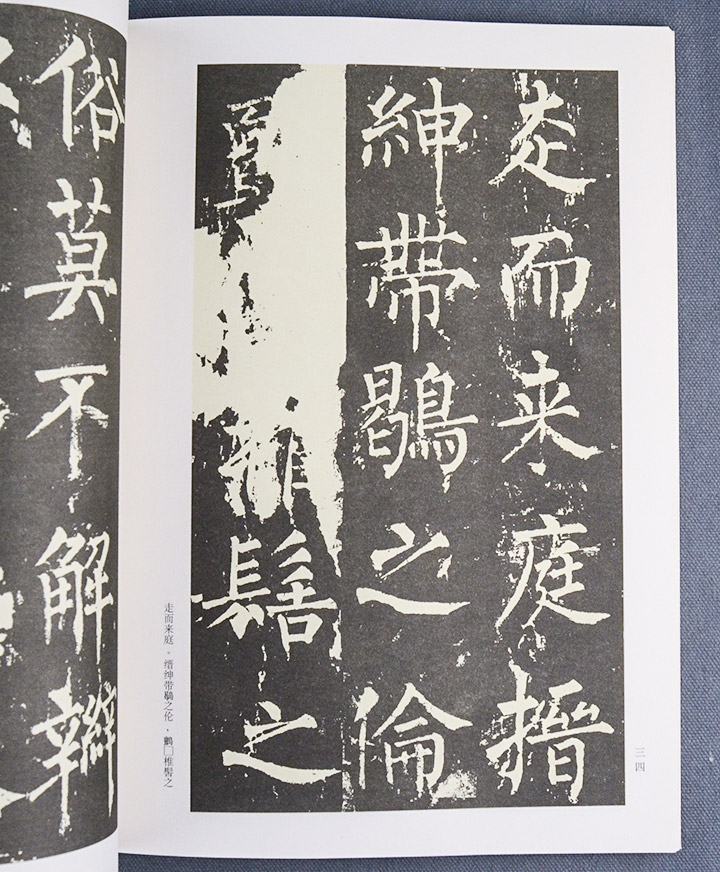 走而来庭搢
紳帶鶡之倫
髺之
走而来庭。缙绅带鶡之伦，□椎髻之
三四
俗莫不解辮